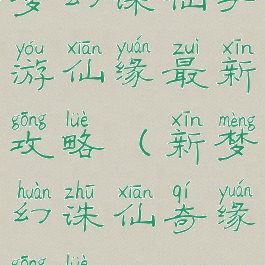 梦幻诛仙奇
yóu xiān yuán zuì xīn
游仙缘最新
gōng lüè xīn mèng
攻略（新梦
huàn zhū xiān qí yuán
幻诛仙奇缘
gōng lüè